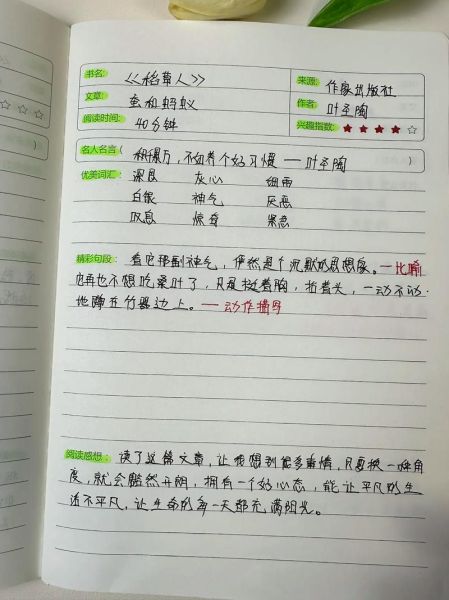 书名： 《稻草人》 来源： 作家出版社
文章： 蚕和蚂蚁 作者： 叶圣陶
阅读时间： 40分钟 兴趣指数： ★★★★☆
名人名言（ 积财万，不如养个好习惯 — 叶圣陶 ）
优美词汇： 深思 灰心 细雨
白银 神气 厌恶
叹息 惊奇 紧急
精彩句段： 看它那副神气，俨然是个沉默的思想家。—比喻
也再也不想吃桑叶了，只是挺着胸，抬着头，一动不动
地蹲在竹器边上。— 动作描写
阅读感想： 读了这篇文章，让我想到很多事情，只要换一种角
度，就会豁然开朗，拥有一个好心态，能让平凡的生
活不平凡，让生命的每一天都充满阳光。